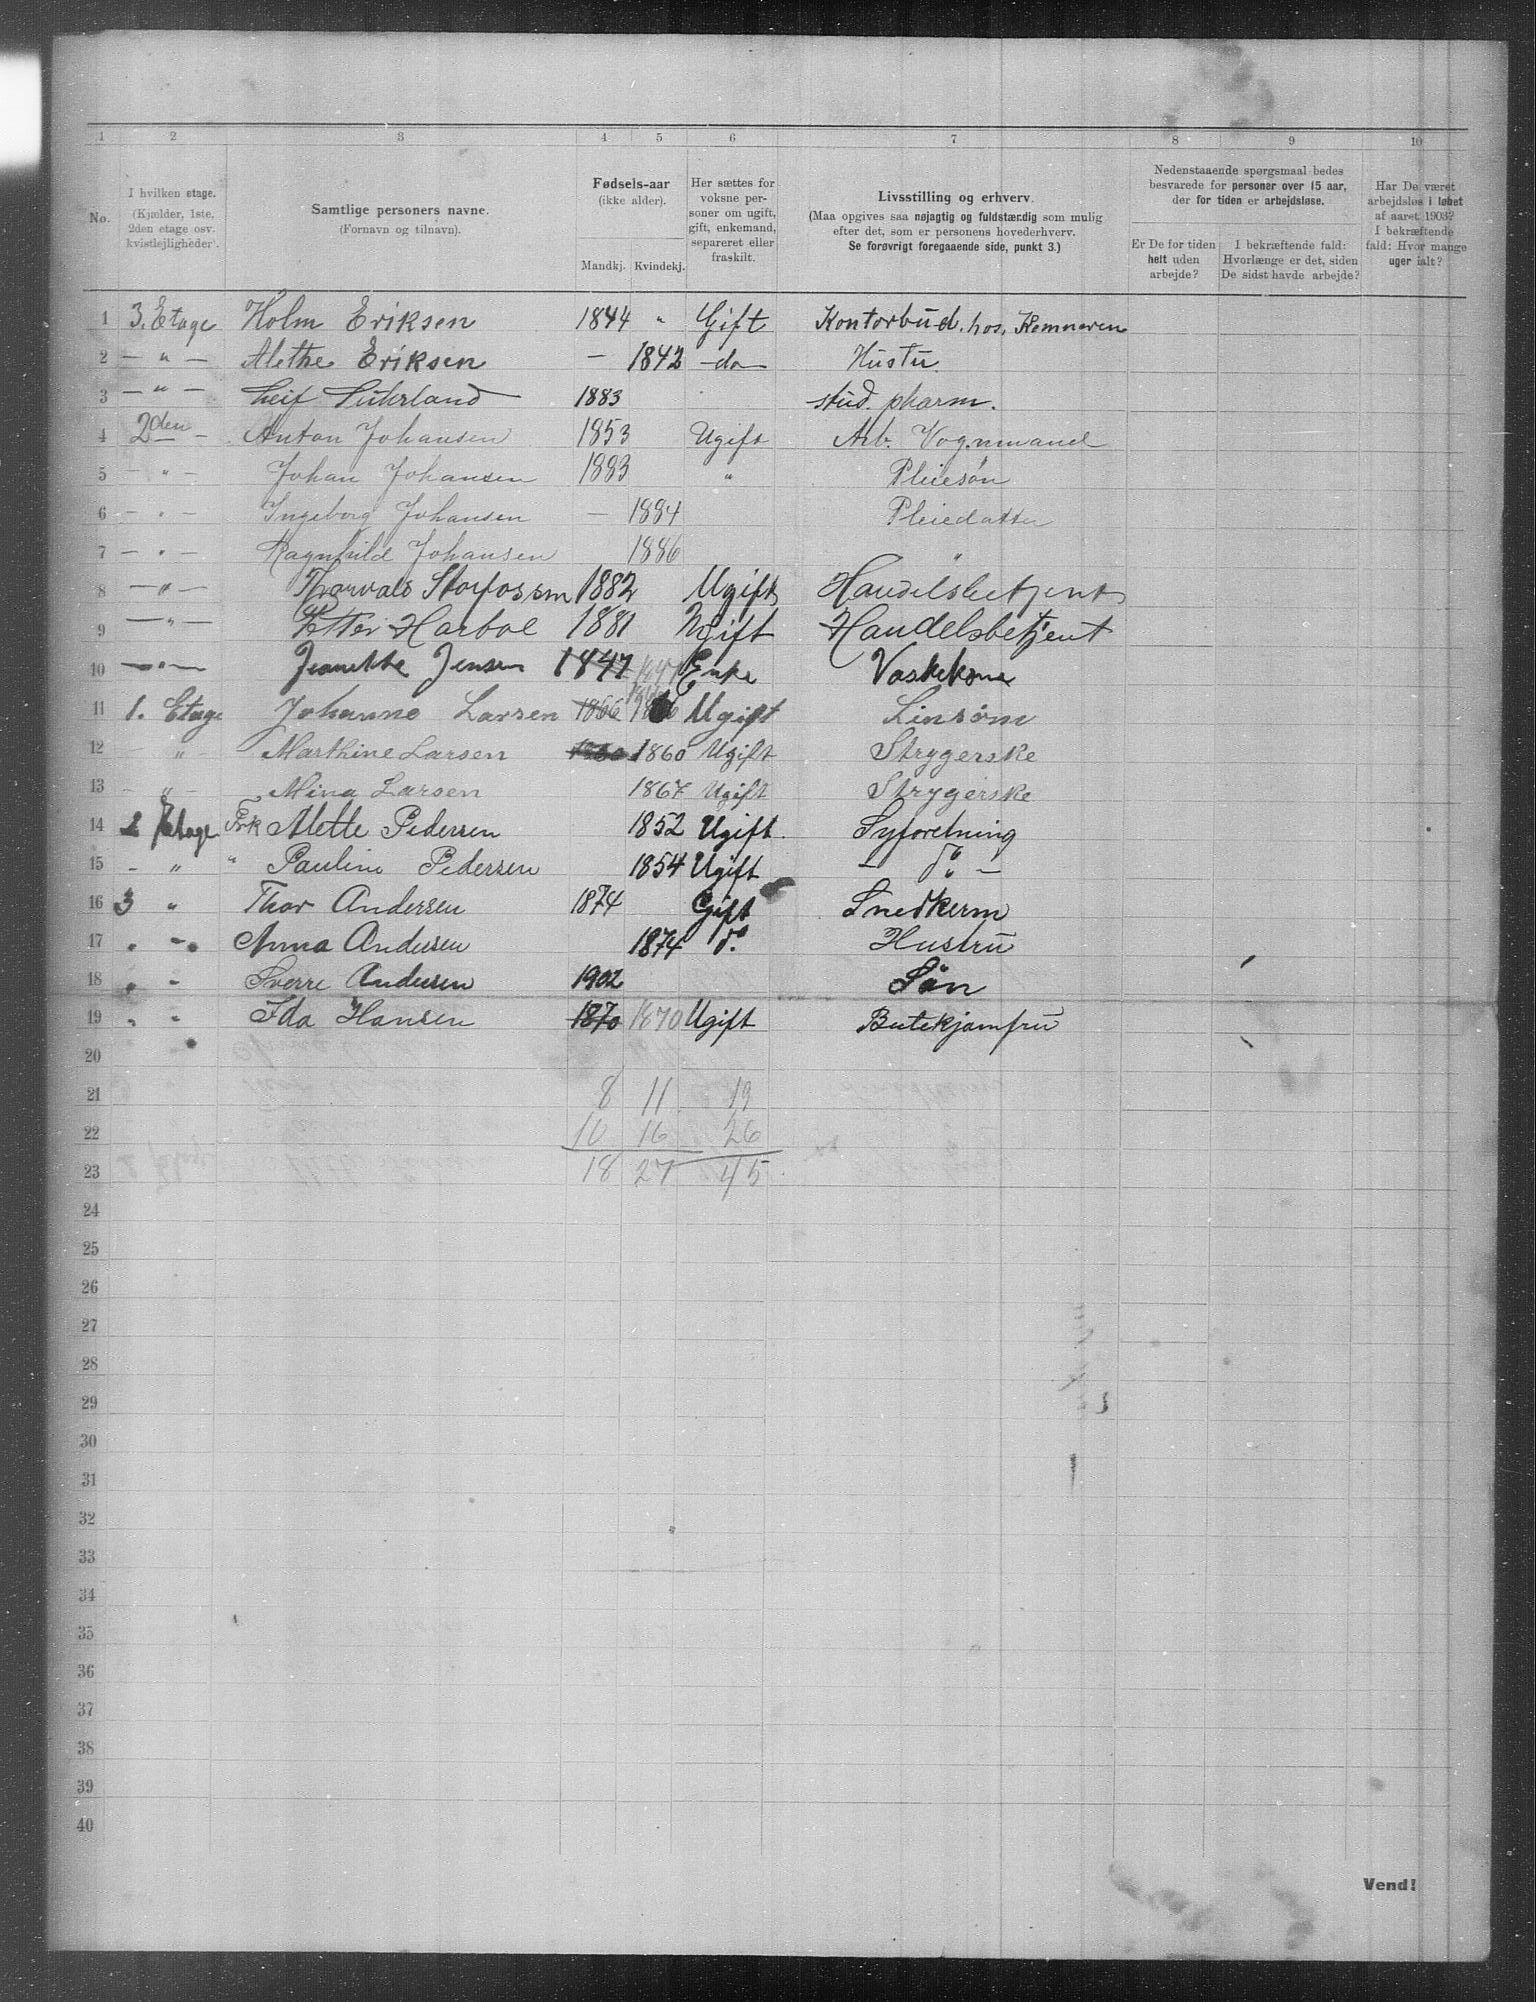 1 2 3 4 5 6 7 8 9 10
No.
I hvilken etage.
(Kjælder, 1ste,
2den etage osv.
kvistlejligheder).
Samtlige personers navne.
(Fornavn og tilnavn).
Fødsels-aar
(ikke alder).
Mandkj. Kvindekj.
Her sættes for
voksne per-
soner om ugift,
gift, enkemand,
separeret eller
fraskilt.
Livsstilling og erhverv.
(Maa opgives saa nøjagtig og fuldstændig som mulig
efter det, som er personens hovederhverv.
Se forøvrigt foregaaende side, punkt 3.)
Nedenstaaende spørgsmaal bedes
besvarede for personer over 15 aar,
der for tiden er arbejdsløse.
Er De for tiden
helt uden
arbejde?
I bekræftende fald:
Hvorlænge er det, siden
De sidst havde arbejde?
Har De været
arbejdsløs i løbet
af aaret 1903?
I bekræftende
fald: Hvor mange
uger ialt?
1 3. Etage Holm Eriksen 1844 " Gift Kontorbud hos Kemneren
2 — " — Alethe Eriksen — 1842 —do— Hustu
3 — " — Leif Suhrland 1883 stud. pharm.
4 2den — Anton Johansen 1853 Ugift Arb. Vognmand
5 — " — Johan Johansen 1883 " Pleiesøn
6 — " — Ingeborg Johansen — 1884 Pleiedatter
7 — " — Ragnhild Johansen 1886 "
8 — " — Thorvald 1882 Ugift Handelsbetjent
9 — " — Petter Harboe 1881 Ugift Handelsbetjent
10 — " — Jeanette Jensen 1847 1847 Enke Vaskekone
11 1. Etage Johanne Larsen 1866 1866 Ugift Linsøm
12 " Marthine Larsen 1860 1860 Ugift Strygerske
13 — " — Mina Larsen 1867 Ugift Strygerske
14 2 Etage Frk Alette Pedersen 1852 Ugift Syforetning
15 — " " Pauline Pedersen 1854 Ugift — do —
16 3 " Thor Andersen 1874 Gift Snedkerm
17 " — " Anna Andersen 1874 do. Hustru
18 " - Sverre Andersen 1902 Søn
19 " " Ida Hansen 1870 1870 Ugift Butekjomfru
20
21 8 11 19
22 10 16 26
23 18 27 45
24
25
26
27
28
29
30
31
32
33
34
35
36
37
38
39
40
Vend!